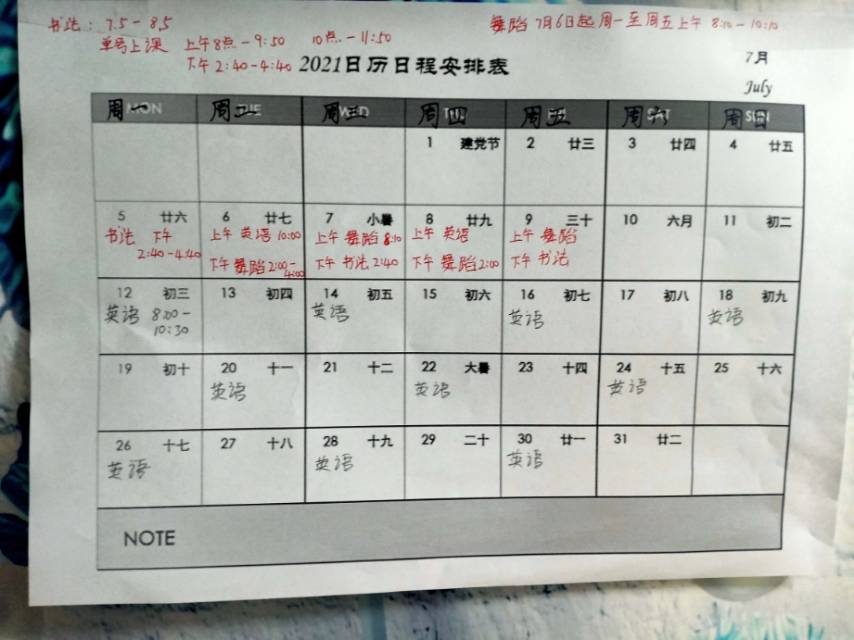 书法：7.5－8.5
舞蹈 7月6日起 周一至周五上午 8:10－10:10
单号上课 上午8点－9:50 10点－11:50
下午 2:40－4:40
2021日历日程安排表
7月
July
周一 周二 周三 周四 周五 周六 周日
1 建党节 2 廿三 3 廿四 4 廿五
5 廿六 6 廿七 7 小暑 8 廿九 9 三十 10 六月 11 初二
书法 下午 上午 英语 10:00 上午 舞蹈 8:10 上午 英语 上午 舞蹈
2:40－4:40 下午 舞蹈 2:00－4:00 下午 书法 2:40 下午 舞蹈 2:00 下午 书法
12 初三 13 初四 14 初五 15 初六 16 初七 17 初八 18 初九
英语 8:00－ 英语 英语 英语
10:30
19 初十 20 十一 21 十二 22 大暑 23 十四 24 十五 25 十六
英语 英语 英语
26 十七 27 十八 28 十九 29 二十 30 廿一 31 廿二
英语 英语 英语
NOTE